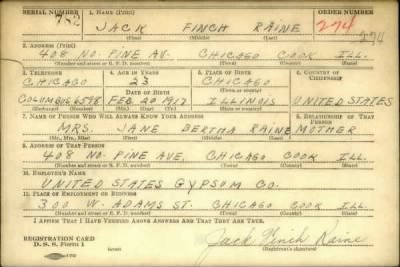 SERIAL NUMBER 1. NAME (Print) ORDER NUMBER
782 JACK FINCH RAINE 274
(First) (Middle) (Last) 274
2. ADDRESS (Print)
408 NO. PINE AV. CHICAGO COOK ILL.
(Number and street or R. F. D. number) (Town) (County) (State)
3. TELEPHONE 4. AGE IN YEARS 5. PLACE OF BIRTH 6. COUNTRY OF CITIZENSHIP
CHICAGO 23 CHICAGO
DATE OF BIRTH (Town or county)
COLUMBUS 6598 FEB. 20 1917 ILLINOIS UNITED STATES
(Exchange) (Number) (Mo.) (Day) (Yr.) (State or country)
7. NAME OF PERSON WHO WILL ALWAYS KNOW YOUR ADDRESS 8. RELATIONSHIP OF THAT PERSON
MRS. JANE BERTHA RAINE MOTHER
(Mr., Mrs., Miss) (First) (Middle) (Last)
9. ADDRESS OF THAT PERSON
408 NO. PINE AVE. CHICAGO COOK ILL.
(Number and street or R. F. D. number) (Town) (County) (State)
10. EMPLOYER'S NAME
UNITED STATES GYPSOM CO.
11. PLACE OF EMPLOYMENT OR BUSINESS
300 W. ADAMS ST. CHICAGO COOK ILL
(Number and street or R. F. D. number) (Town) (County) (State)
I AFFIRM THAT I HAVE VERIFIED ABOVE ANSWERS AND THAT THEY ARE TRUE.
REGISTRATION CARD
D. S. S. Form 1 Jack Finch Raine
(Registrant's signature)